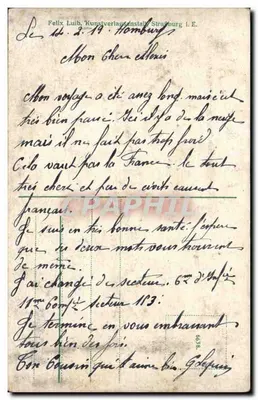 Felix Luib, Kunstverlagsanstalt, Straßburg i. E.
Le 14. 2. 19 Hombourg
Mon Cher Alexis
Mon voyage a été assez long mais s'est
très bien passé Ici il y a de la neige
mais il ne fait pas trop froid
Cela vaut pas la France le tout
très chere et pas de civils causent
français.
CPAPHIL
Je suis en très bonne santé j'espere
que ses deux mots vous trouveront
de meme.
J'ai changé de secteur 6me d'Infie
11me Compie secteur 113:
Je termine en vous embrassant
tous bien des fois
Ton Cousin qui t'aime bien